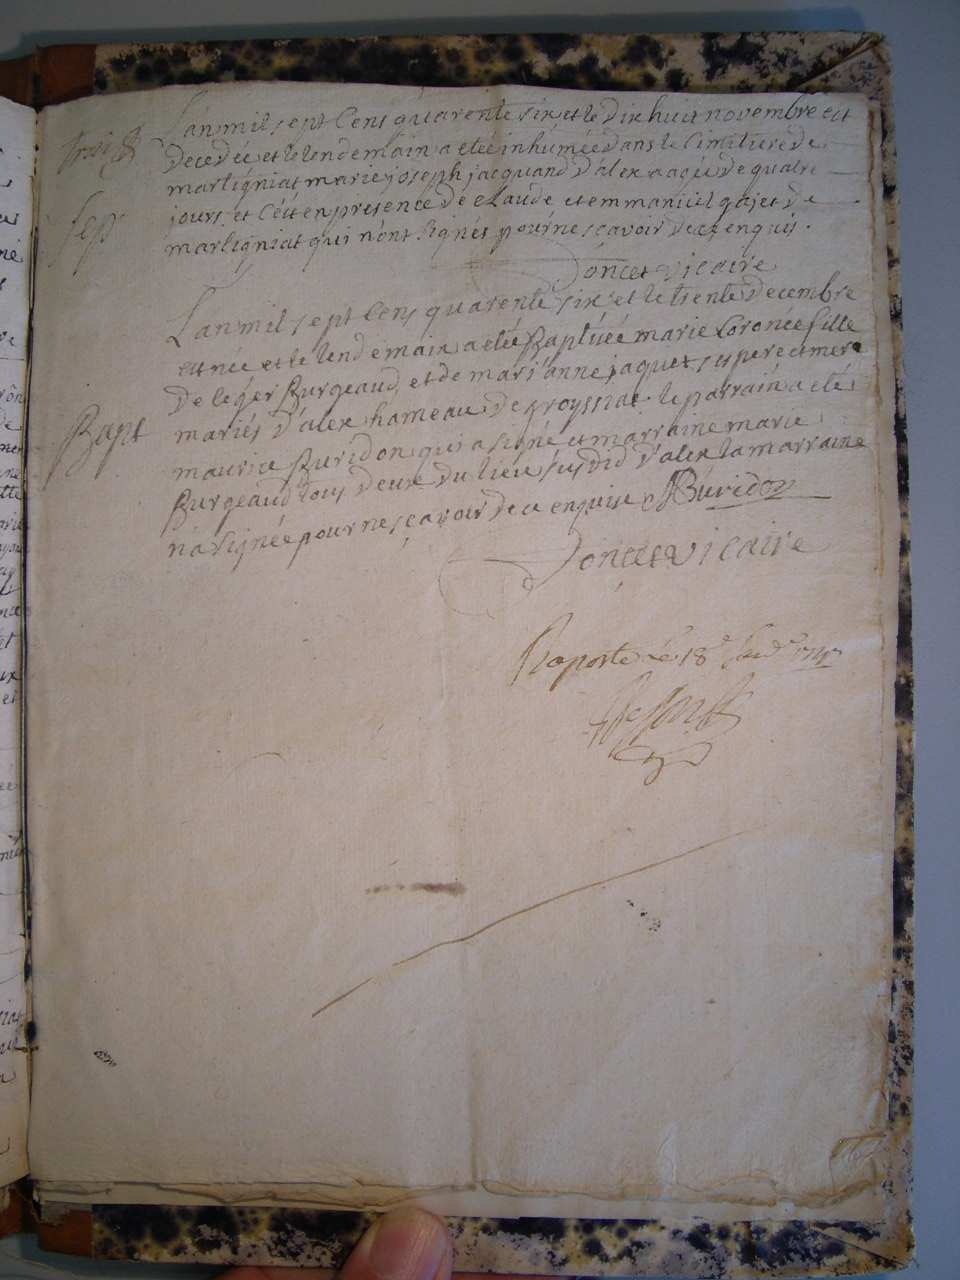 Lan mil sept Cens quarente six et le dix huit novembre est
decedée et le lendemain a eté inhumée dans le Cimitiere de
martigniat marie joseph jacquand d'alex aagée de quatre
jours et C'est en presence de Claude et emmanuel gajet de
martigniat qui n'ont signés pour ne sçavoir de ce enquis.
sep
Doncet vicaire
Lan mil sept Cens quarente six et le trente decembre
est née et le lendemain a eté Baptisée marie Coronée fille
de leger Burgeaud, et de marianne jaquet, ses pere et mere
mariés d'alex hameau de groyssiat le parrain a eté
Bapt
maurice Buridon qui a signé et marraine marie
Burgeaud tous deux du lieu susdid d'alex la marraine
n'a signée pour ne sçavoir de ce enquise Buridon
Doncet vicaire
Raporte le 18e